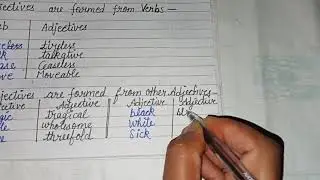 djectives are formed from Verbs-
rb Adjectives
reless Tireless
lk talkative
ase Ceaseless
ove Moveable
djectives are formed from other Adjectives-
ective Adjective Adjective Adjective
agic tragical black bl
le wholesome White
ee threefold Sick